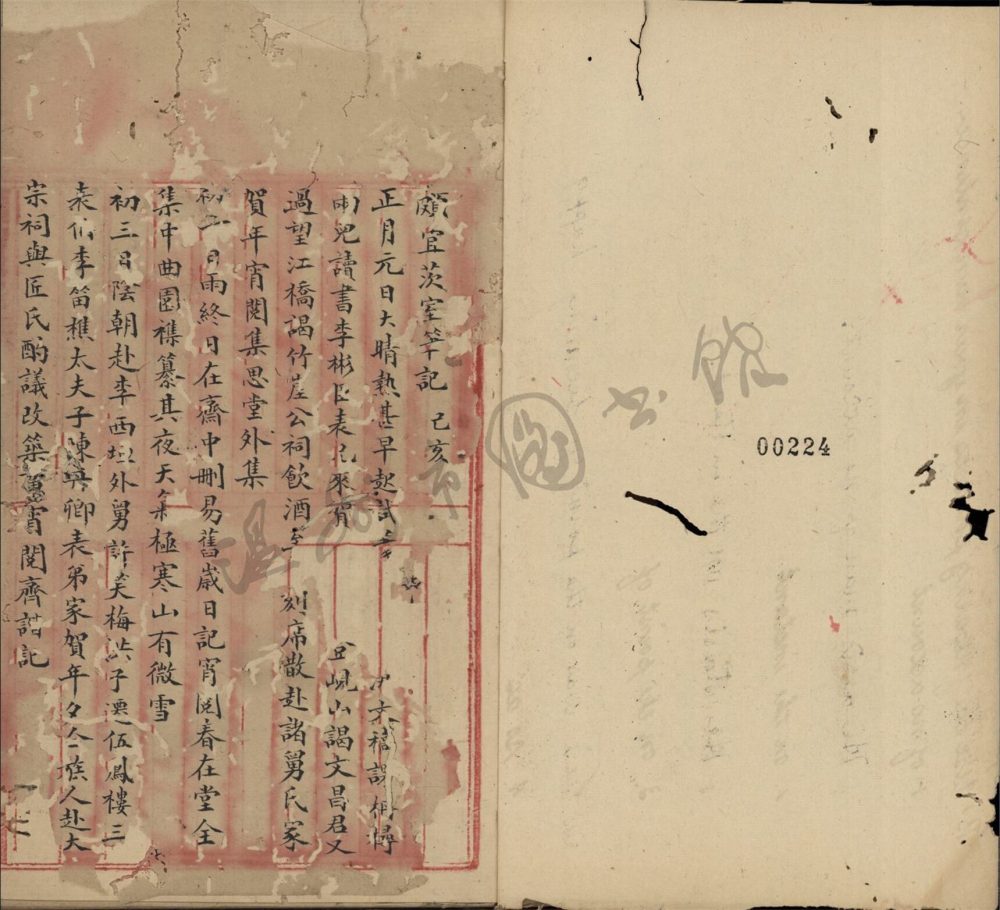 頗宜茨室筆記 己亥
正月元日大晴熱甚早起試
兩兒讀書李彬臣表兄來賀 峴山謁文昌君又
過望江橋謁竹崖公祠飲酒 刻席散赴諸舅氏家
賀年宵閱集思堂外集
初二日雨終日在齋中刪易舊歲日記宵閱春在堂全
集中曲園襍纂其夜天氣極寒山有微雪
初三日陰朝赴李西垣外舅許笑梅洪子遷伍鳳樓三
表伯李笛樵太夫子陳興卿表弟家賀年夕合族人赴大
宗祠與匠氏酌議改築 宵閱齊諧記
溫州市圖書館
00224